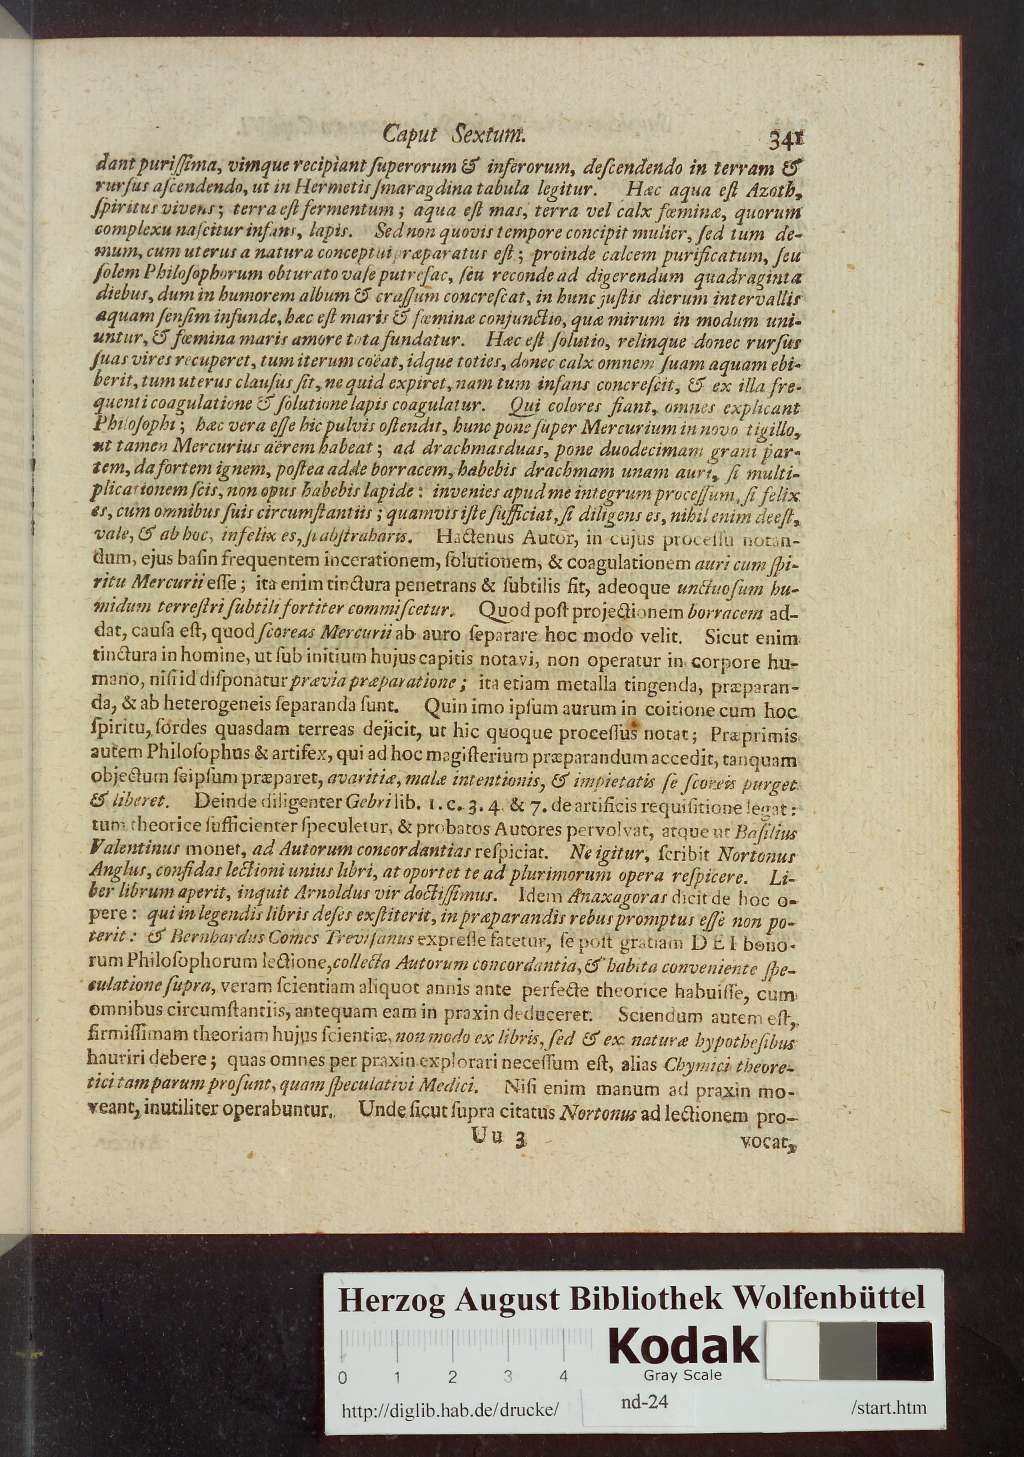 Caput Sextum. 341
dant purissima, vimque recipiant superorum & inferorum, descendendo in terram &
rursus ascendendo, ut in Hermetis smaragdina tabula legitur. Hæc aqua est Azoth,
spiritus vivens; terra est fermentum; aqua est mas, terra vel calx fœminæ, quorum
complexu nascitur infans, lapis. Sed non quovis tempore concipit mulier, sed tum de-
mum, cum uterus a natura conceptui præparatus est; proinde calcem purificatum, seu
solem Philosophorum obturato vase putrefac, seu reconde ad digerendum quadraginta
diebus, dum in humorem album & crassum concrescat, in hunc justis dierum intervallis
aquam sensim infunde, hæc est maris & fœminæ conjunctio, quæ mirum in modum uni-
untur, & fœmina maris amore tota fundatur. Hæc est solutio, relinque donec rursus
suas vires recuperet, tum iterum coëat, idque toties, donec calx omnem suam aquam ebi-
berit, tum uterus clausus sit, ne quid expiret, nam tum infans concrescit, & ex illa fre-
quenti coagulatione & solutione lapis coagulatur. Qui colores fiant, omnes explicant
Philosophi; hæc vera esse hic pulvis ostendit, hunc pone super Mercurium in novo tigillo,
ut tamen Mercurius aërem habeat; ad drachmas duas, pone duodecimam grani par-
tem, da fortem ignem, postea adde borracem, habebis drachmam unam auri, si multi-
plicationem scis, non opus habebis lapide: invenies apud me integrum processum, si felix
es, cum omnibus suis circumstantiis; quamvis iste sufficiat, si diligens es, nihil enim deest,
vale, & ab hoc, infelix es, si abstraharis. Hactenus Autor, in cujus processu notan-
dum, ejus basin frequentem incerationem, solutionem, & coagulationem auri cum spi-
ritu Mercurii esse; ita enim tinctura penetrans & subtilis fit, adeoque unctuosum hu-
midum terrestri subtili fortiter commiscetur. Quod post projectionem borracem ad-
dat, causa est, quod scoreas Mercurii ab auro separare hoc modo velit. Sicut enim
tinctura in homine, ut sub initium hujus capitis notavi, non operatur in corpore hu-
mano, nisi id disponatur prævia præparatione; ita etiam metalla tingenda, præparan-
da, & ab heterogeneis separanda sunt. Quin imo ipsum aurum in coitione cum hoc
spiritu, sordes quasdam terreas dejicit, ut hic quoque processus notat; Præprimis
autem Philosophus & artifex, qui ad hoc magisterium præparandum accedit, tanquam
objectum seipsum præparet, avaritiæ, malæ intentionis, & impietatis se scoreis purget
& liberet. Deinde diligenter Gebri lib. 1. c. 3. 4. & 7. de artificis requisitione legat:
tum theorice sufficienter speculetur, & probatos Autores pervolvat, atque ut Basilius
Valentinus monet, ad Autorum concordantias respiciat. Ne igitur, scribit Nortonus
Anglus, confidas lectioni unius libri, at oportet te ad plurimorum opera respicere. Li-
ber librum aperit, inquit Arnoldus vir doctissimus. Idem Anaxagoras dicit de hoc o-
pere: qui in legendis libris deses exstiterit, in præparandis rebus promptus esse non po-
terit: & Bernhardus Comes Trevisanus expresse fatetur, se post gratiam DEI bono-
rum Philosophorum lectione, collecta Autorum concordantia, & habita conveniente spe-
culatione supra, veram scientiam aliquot annis ante perfecte theorice habuisse, cum
omnibus circumstantiis, antequam eam in praxin deduceret. Sciendum autem est,
firmissimam theoriam hujus scientiæ, non modo ex libris, sed & ex naturæ hypothesibus
hauriri debere; quas omnes per praxin explorari necessum est, alias Chymici theore-
tici tam parum prosunt, quam speculativi Medici. Nisi enim manum ad praxin mo-
veant, inutiliter operabuntur. Unde sicut supra citatus Nortonus ad lectionem pro-
Uu 3 vocat,
Herzog August Bibliothek Wolfenbüttel
Kodak
Gray Scale
0 1 2 3 4
http://diglib.hab.de/drucke/ nd-24 /start.htm